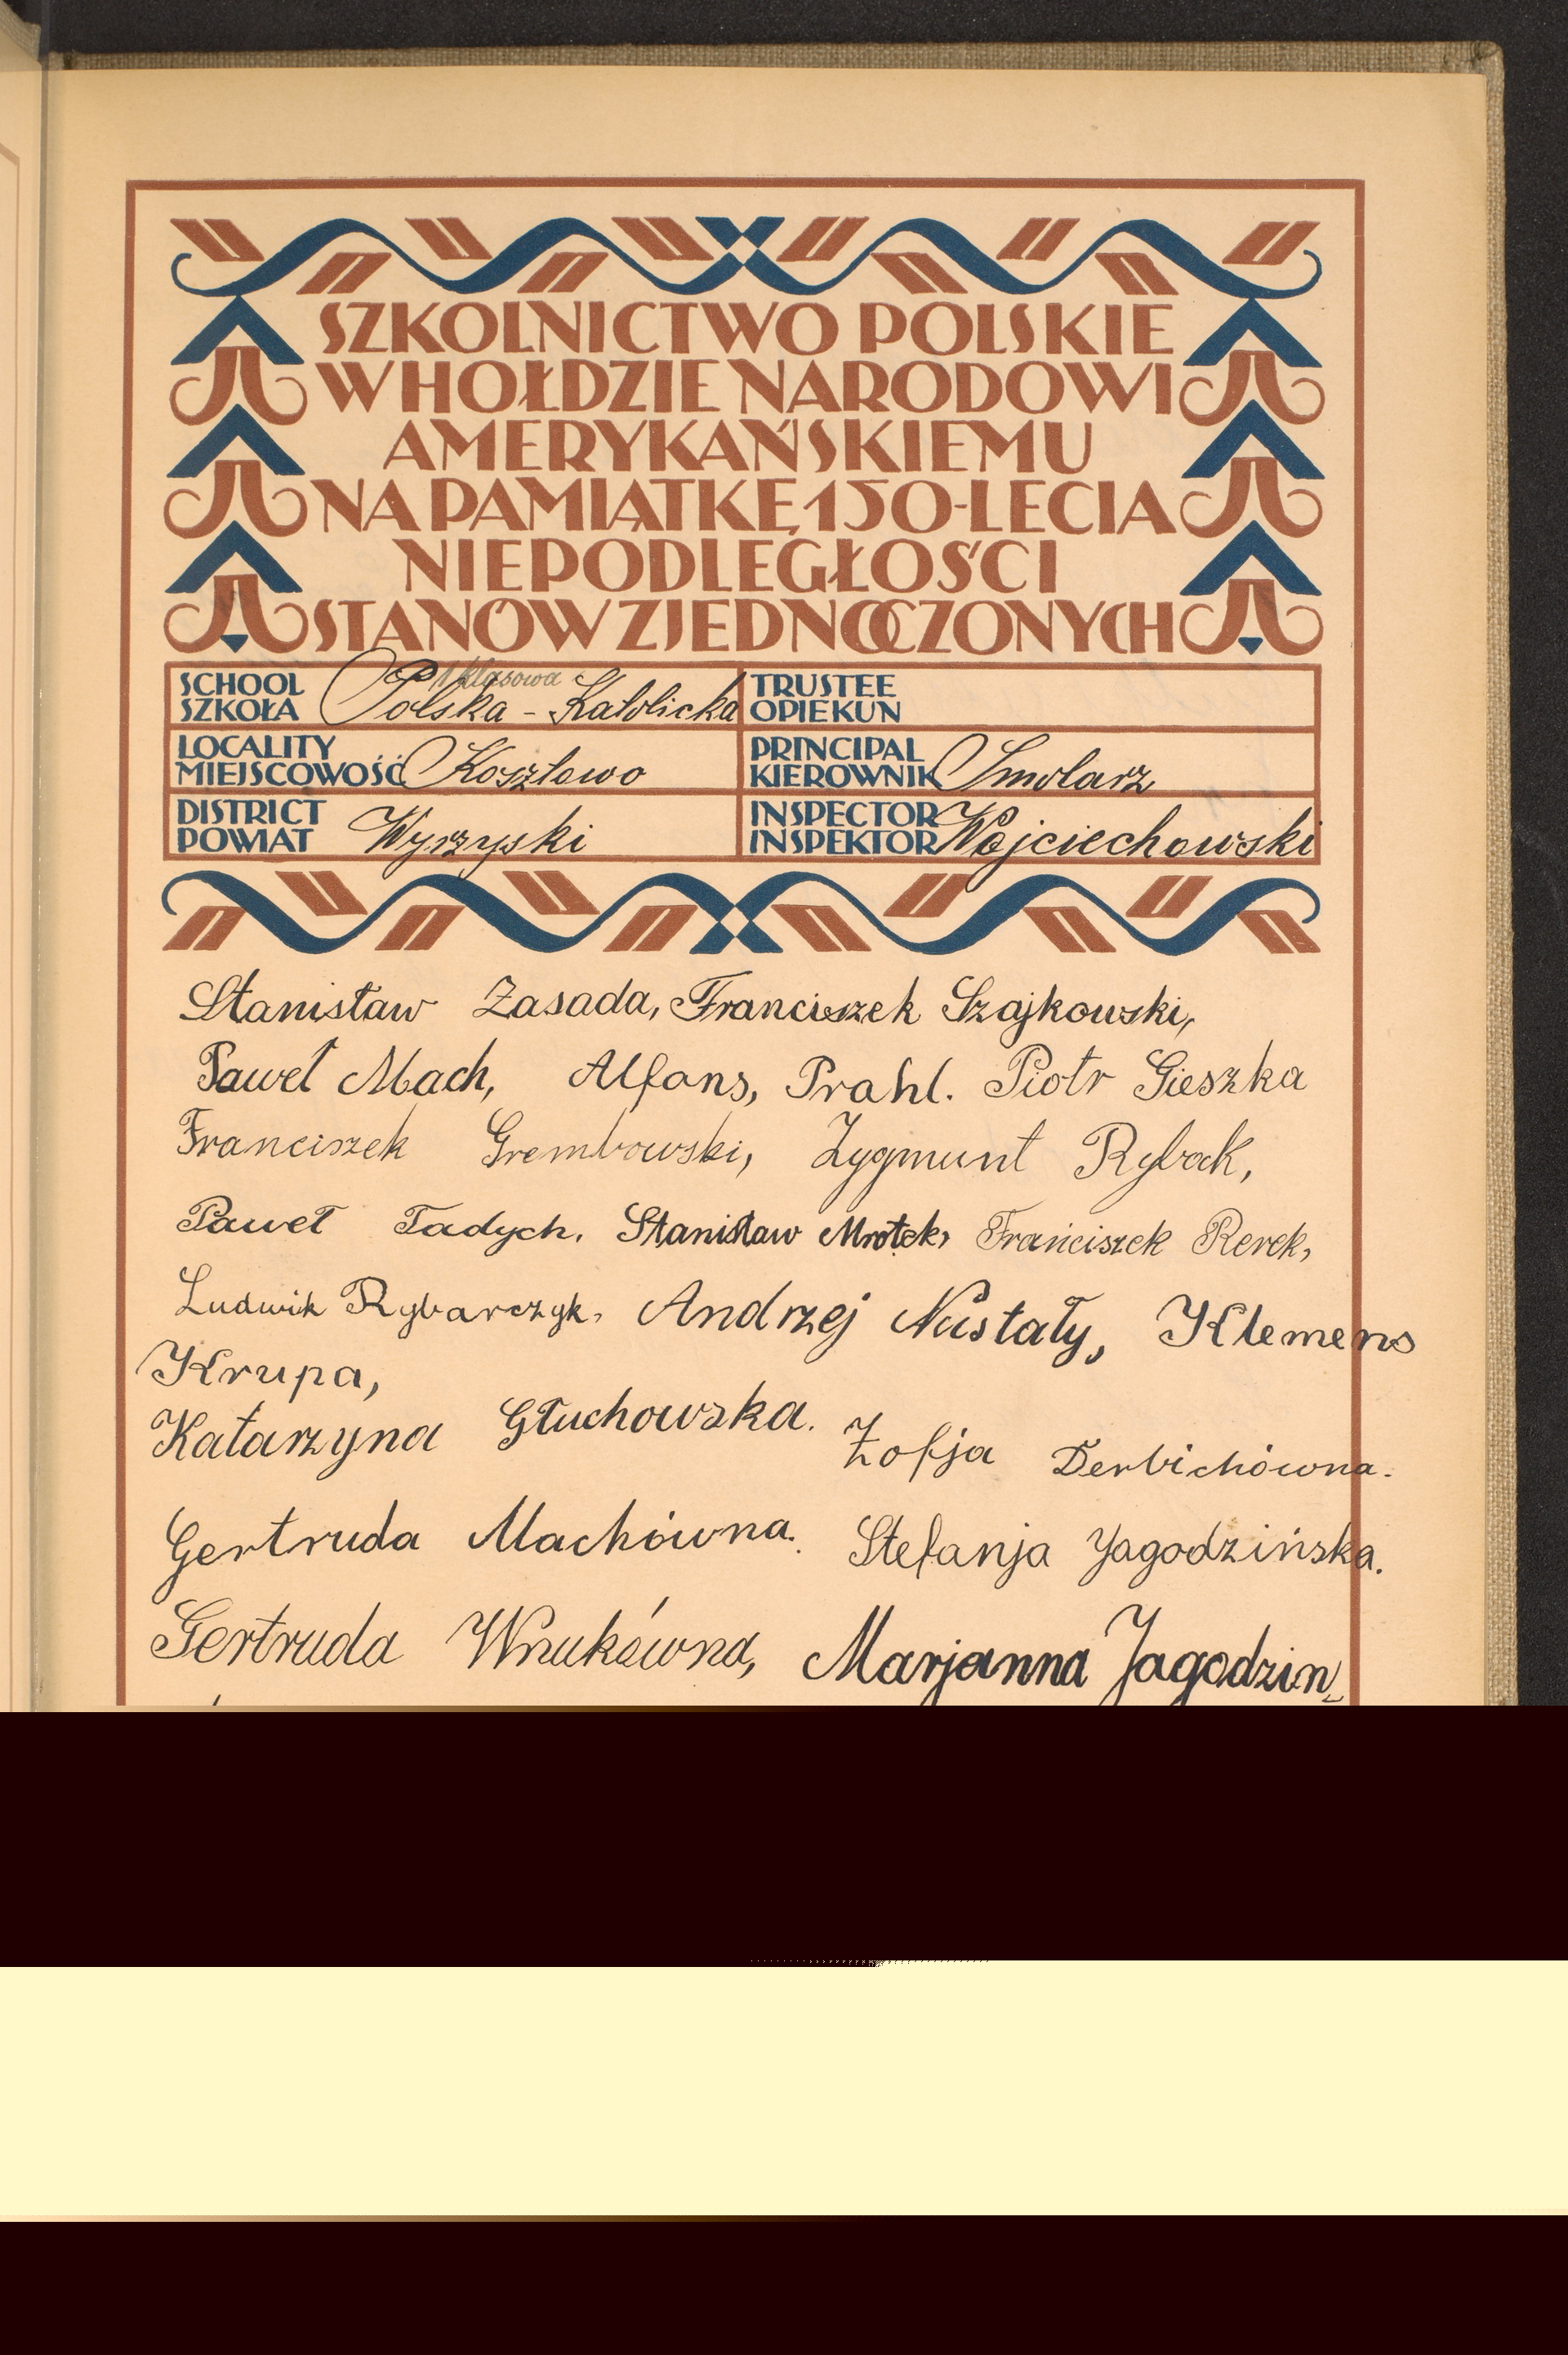 SZKOLNICTWO POLSKIE
W HOŁDZIE NARODOWI
AMERYKAŃSKIEMU
NA PAMIĄTKĘ 150-LECIA
NIEPODLEGŁOŚCI
STANÓW ZJEDNOCZONYCH
SCHOOL
SZKOŁA
1 klasowa
Polska - Katolicka
TRUSTEE
OPIEKUN
LOCALITY
MIEJSCOWOŚĆ Kosztowo
PRINCIPAL
KIEROWNIK Smolarz
DISTRICT
POWIAT Wyrzyski
INSPECTOR
INSPEKTOR Wojciechowski
Stanisław Zasada, Franciszek Szajkowski,
Paweł Mach, Alfons, Prahl. Piotr Gieszka
Franciszek Grembowski, Zygmunt Rybak,
Paweł Tadych. Stanisław Mrotek, Franciszek Rerek,
Ludwik Rybarczyk, Andrzej Nustały, Klemens
Krupa,
Katarzyna Głuchowska. Zofja Derbichówna.
Gertruda Machówna. Stefanja Yagodzińska.
Gertruda Wnukówna, Marjanna Jagodzin